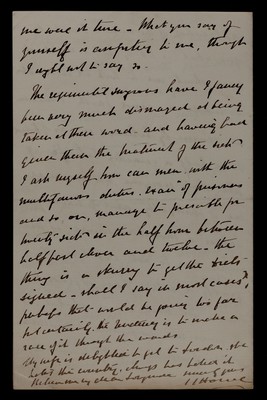 me were it time - What you say of
yourself is comforting to me, though
I ought not to say so.
The regimental surgeons have I fancy
been very much dismayed at being
taken at their word and having had
given them the treatment of the sick
I ask myself how can men with the
multifarious duties, exam of prisoners
and so on, manage to prescribe for
twenty sick in the half hour between
half past eleven and twelve - the
thing is a hurry to get the diets
signed - shall I say in most cases?,
perhaps that would be going too far
but certainly the tendency is to make a
race of it through the wards
My wife is delighted to get to London, she
hates the country, always has hated it